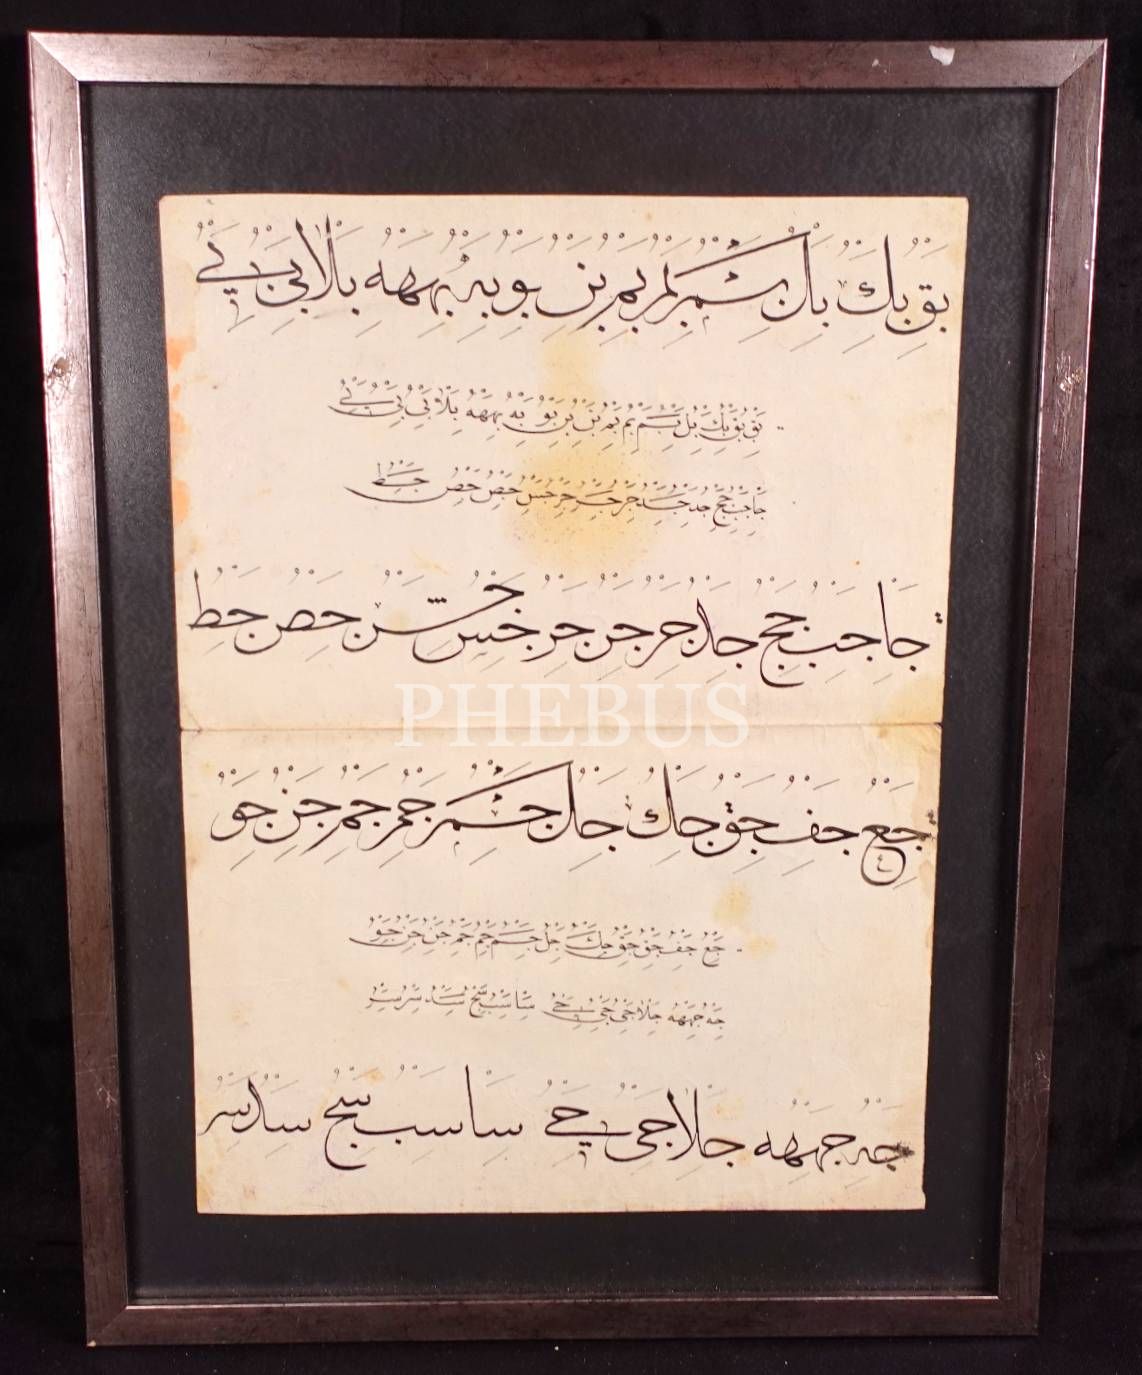 بق بك بل بسم بلمر بم بن بو به بههه بلا بى بے
بق بق بك بل بسم بم بم بن بن بو به بههه بلا بى بى بے
جا جب جج جد جسد جر جسر جز جس جص جص جط
جا جب جج جد جر جن جر خس جسن حص حط
PHEBUS
جع جف جق جك جل جسم جم جم جن جو
جع جف جق جق جك جل جسم جم جم جن جن جو
جه جهه جلا جى جى جے سا سب سج سد سر سر
جه جهه جلا جى جے سا سب سج سد سر